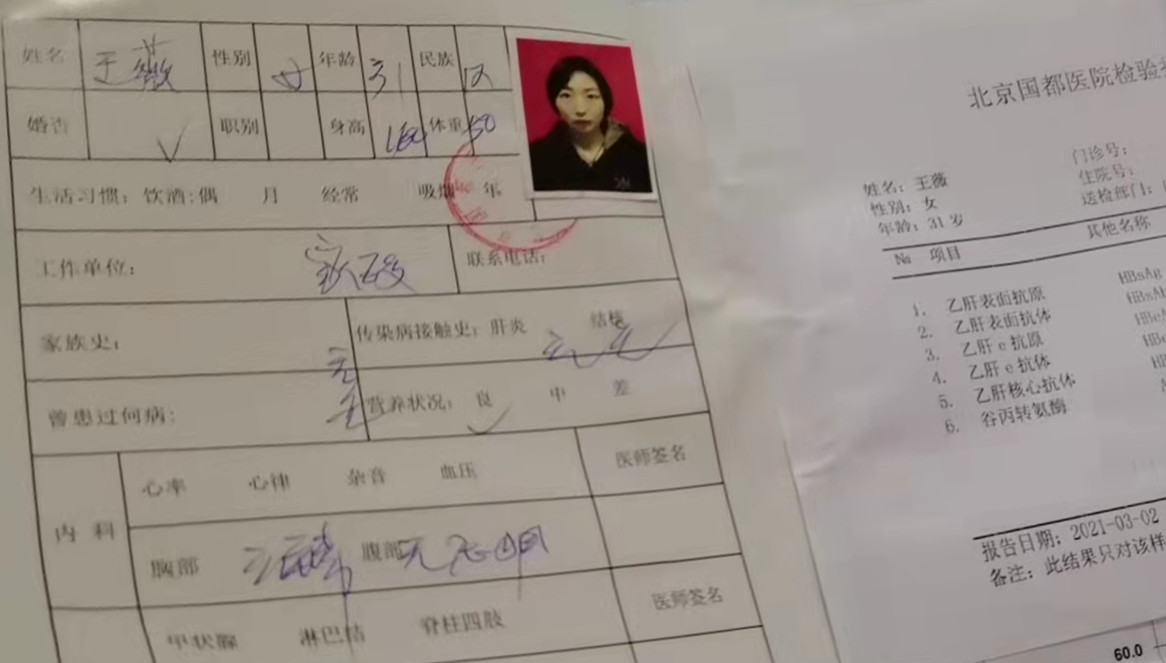 姓名 王薇 性别 女 年龄 31 民族 汉
婚否 √ 职别 身高 160 体重 50
生活习惯：饮酒：偶 月 经常 吸烟 年
工作单位： 联系电话：
家族史： 无 传染病接触史：肝炎 无 结核 无
曾患过何病： 无 营养状况：良 √ 中 差
内科 心率 心律 杂音 血压 医师签名
胸部 腹部
甲状腺 淋巴结 脊柱四肢 医师签名
北京国都医院检验
姓名：王薇 门诊号：
性别：女 住院号：
年龄：31岁 送检部门：
№ 项目 其他名称
1. 乙肝表面抗原 HBsAg
2. 乙肝表面抗体 HBsAb
3. 乙肝e抗原 HBeA
4. 乙肝e抗体 HBe
5. 乙肝核心抗体 HB
6. 谷丙转氨酶
报告日期：2021-03-02
备注：此结果只对该样
60.0